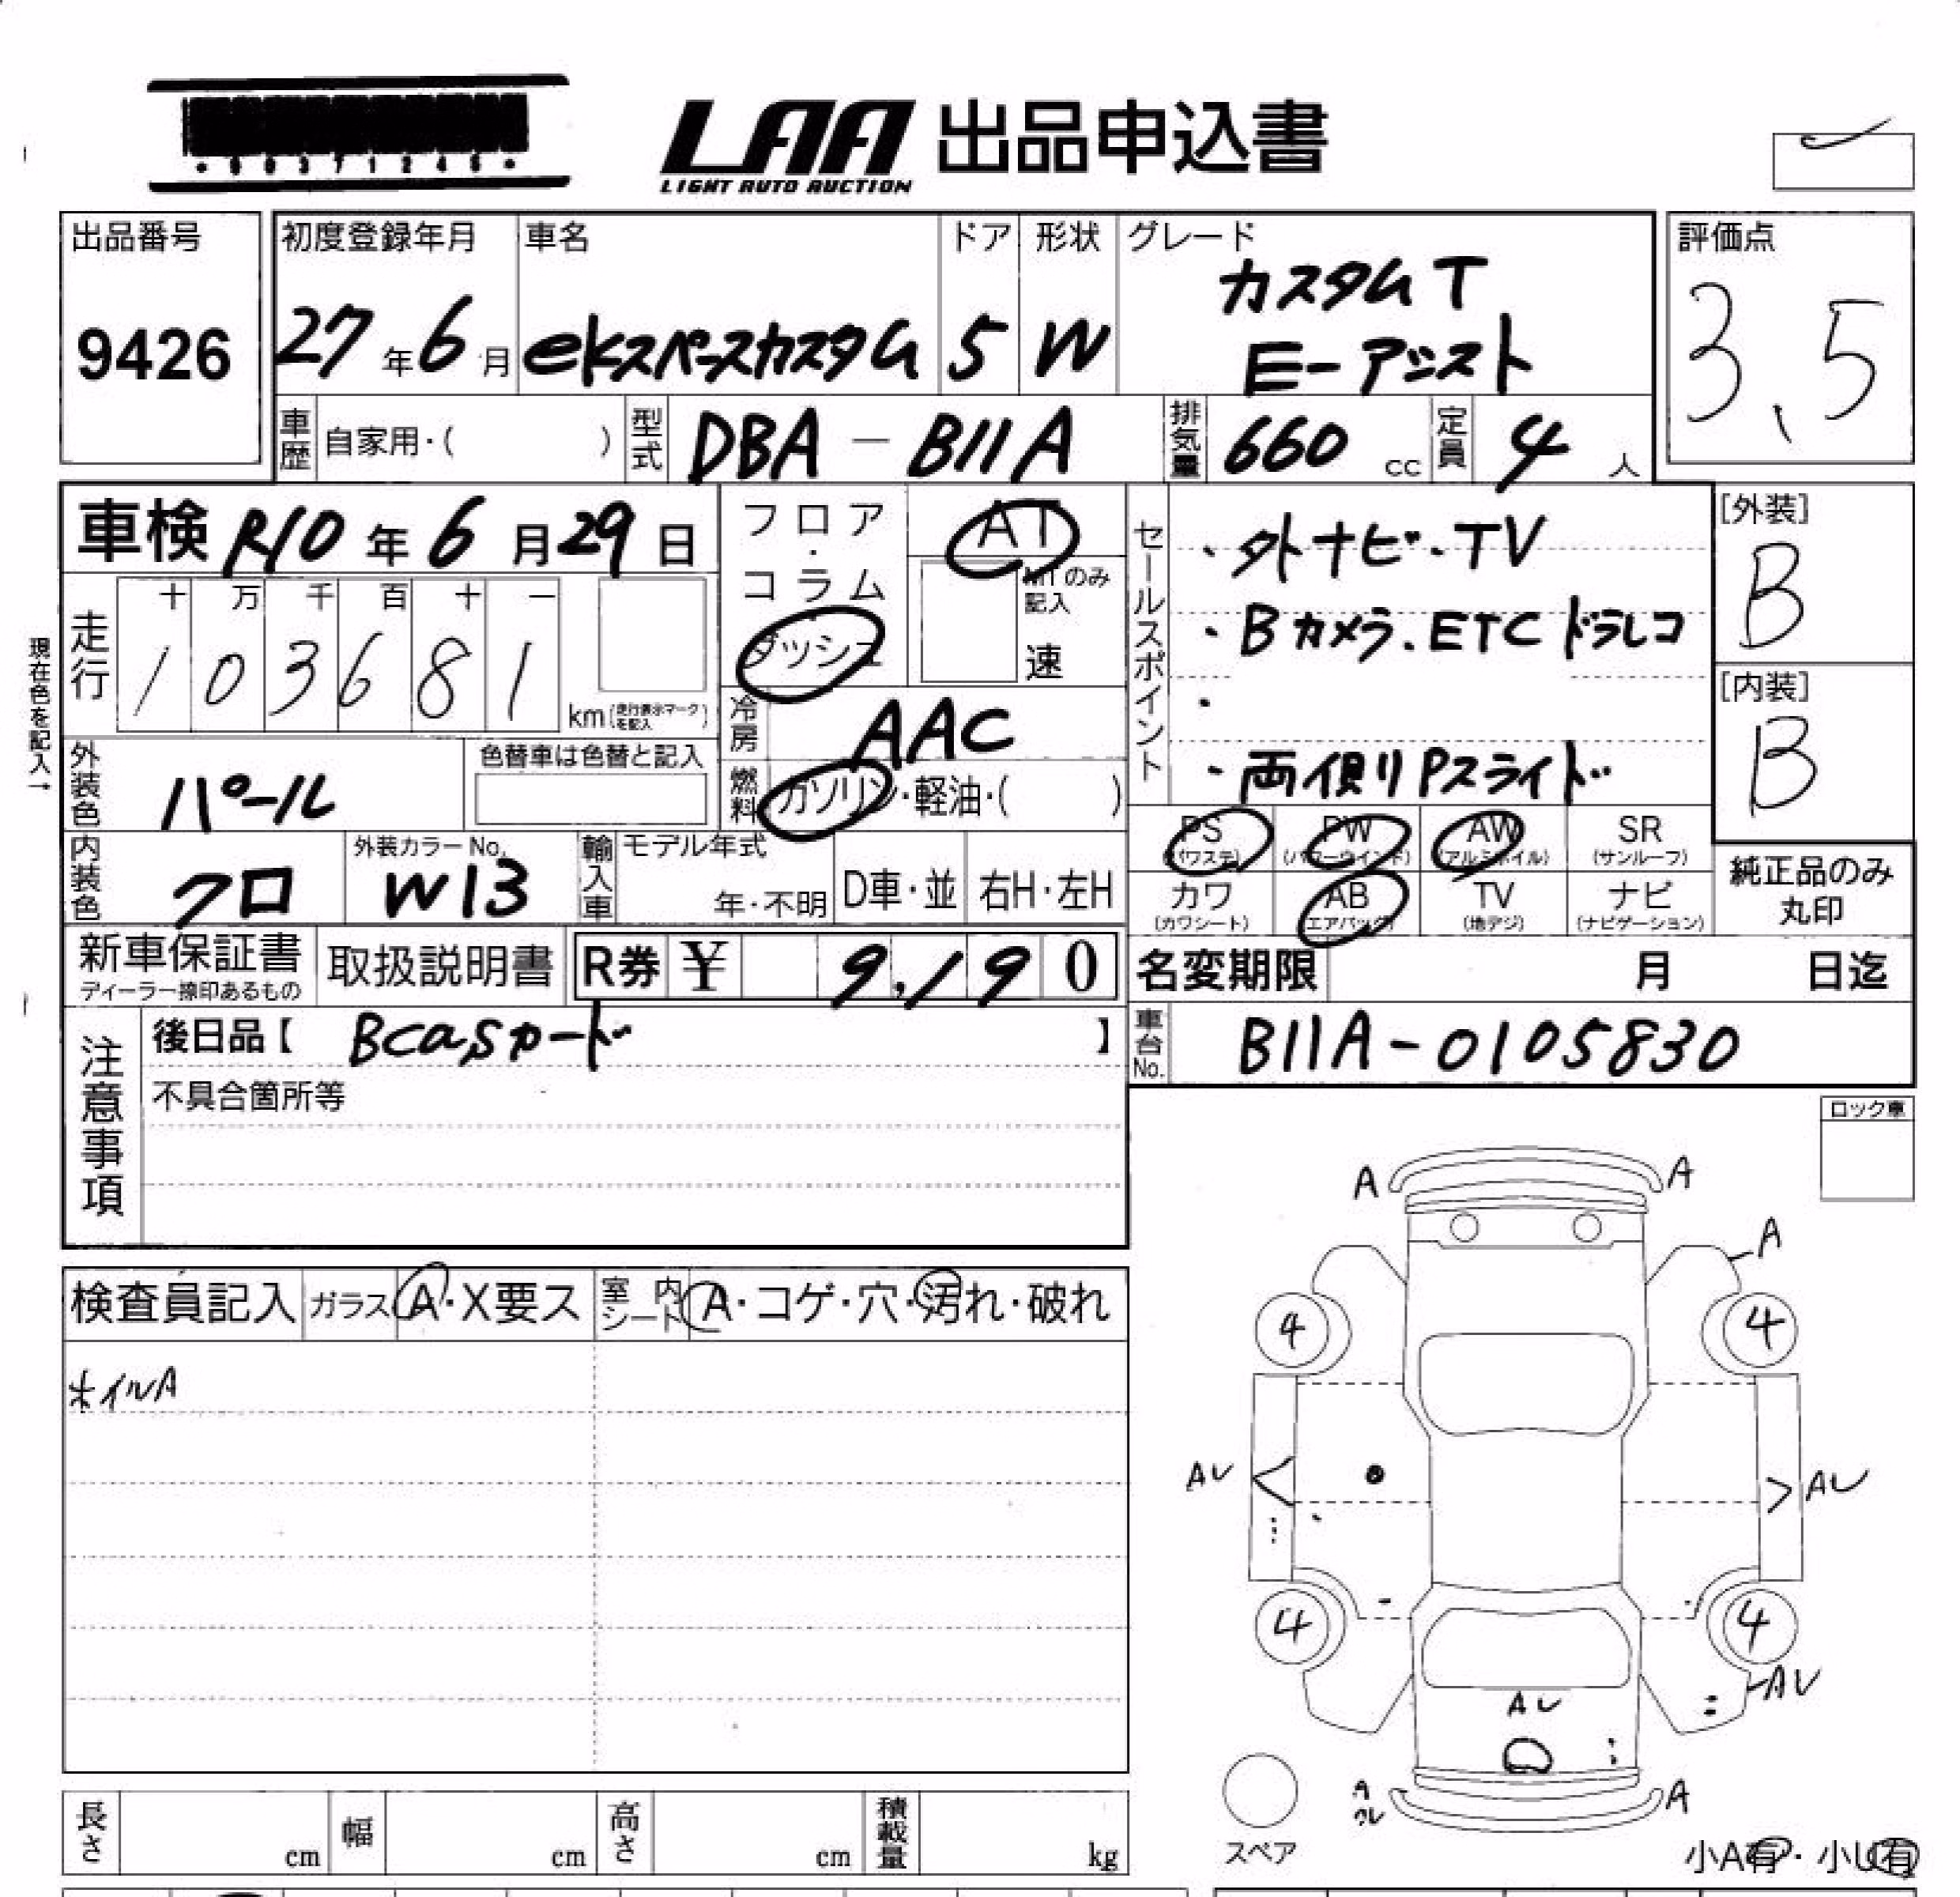 LAA 出品申込書
LIGHT AUTO AUCTION
出品番号
9426
初度登録年月
27年6月
車名
ekスペースカスタム
ドア
5
形状
W
グレード
カスタムT
E-アシスト
評価点
3.5
車歴 自家用・( )
型式 DBA-B11A
排気量 660 cc
定員 4 人
車検 R10年6月29日
現在色を記入→
走行
十 万 千 百 十 一
1 0 3 6 8 1 km (走行表示マークを記入)
フロア・コラム・ダッシュ
AT
MTのみ記入
速
冷房 AAC
燃料 ガソリン・軽油・( )
外装色 パール
色替車は色替と記入
内装色 クロ
外装カラーNo. W13
輸入車
モデル年式
年・不明
D車・並
右H・左H
セールスポイント
・外ナビ・TV
・Bカメラ.ETCドラレコ
・
・両側Pスライド
[外装]
B
[内装]
B
PS (パワステ)
PW (パワーウインド)
AW (アルミホイル)
SR (サンルーフ)
カワ (カワシート)
AB (エアバック)
TV (地デジ)
ナビ (ナビゲーション)
純正品のみ
丸印
新車保証書
ディーラー捺印あるもの
取扱説明書
R券 ¥ 9,190
名変期限 月 日迄
車台No. B11A-0105830
注意事項
後日品【 Bcasカード 】
不具合箇所等
ロック車
検査員記入
ガラス A・X要ス
室内シート A・コゲ・穴・汚れ・破れ
ホイルA
A A
A
4 4
AU AU
4 4
AU
AU
A
A
スペア
小A有・小U有
長さ cm
幅 cm
高さ cm
積載量 kg